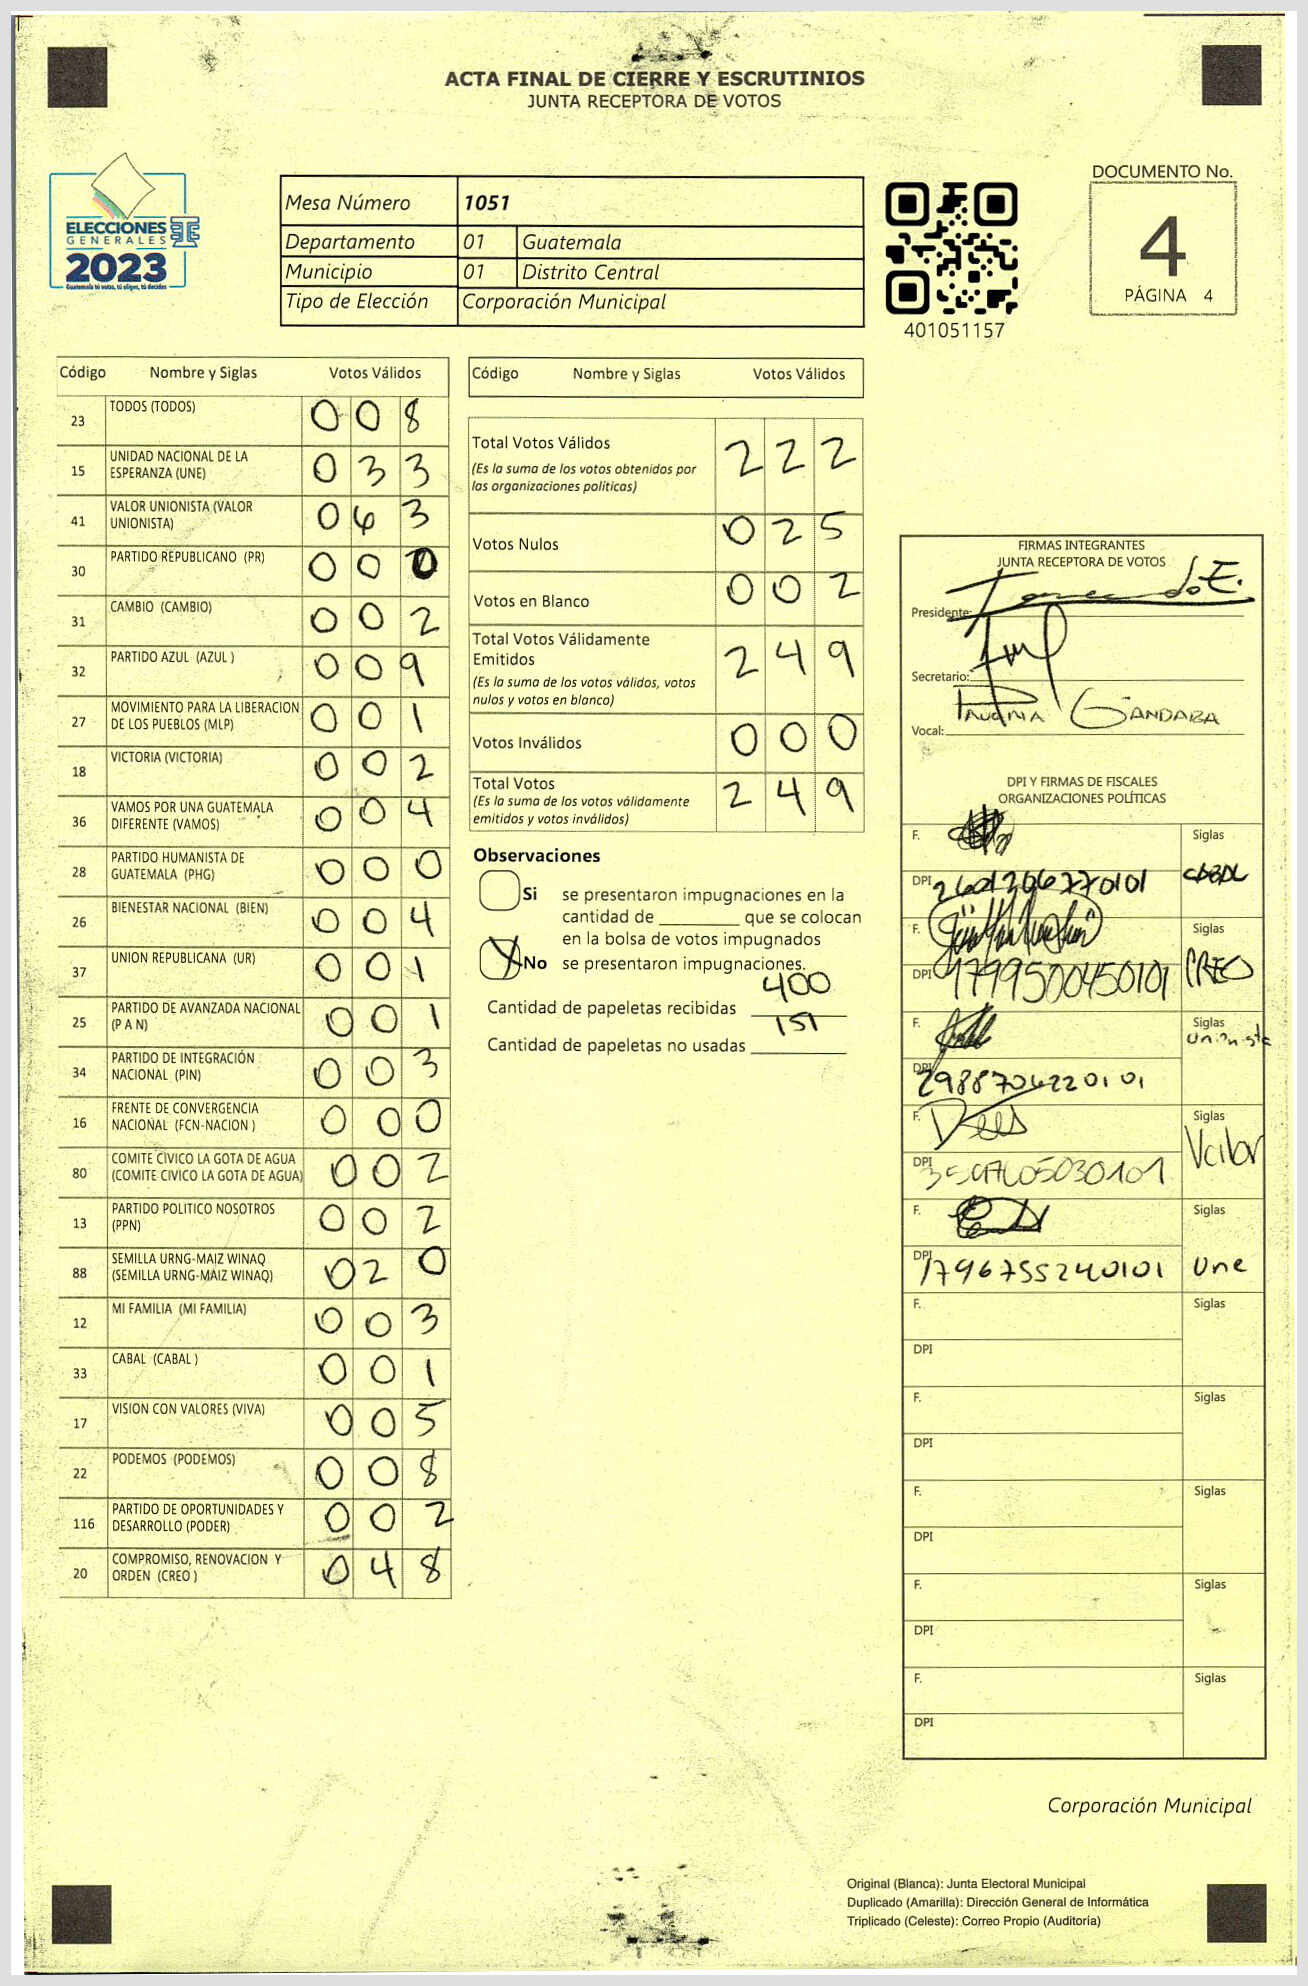 ACTA FINAL DE CIERRE Y ESCRUTINIOS
JUNTA RECEPTORA DE VOTOS
ELECCIONES
GENERALES
2023
Guatemala tú votas, tú eliges, tú decides
Mesa Número 1051
Departamento 01 Guatemala
Municipio 01 Distrito Central
Tipo de Elección Corporación Municipal
401051157
DOCUMENTO No.
4
PÁGINA 4
Código Nombre y Siglas Votos Válidos
23 TODOS (TODOS) 0 0 8
15 UNIDAD NACIONAL DE LA
ESPERANZA (UNE) 0 3 3
41 VALOR UNIONISTA (VALOR
UNIONISTA) 0 6 3
30 PARTIDO REPUBLICANO (PR) 0 0 0
31 CAMBIO (CAMBIO) 0 0 2
32 PARTIDO AZUL (AZUL ) 0 0 9
27 MOVIMIENTO PARA LA LIBERACION
DE LOS PUEBLOS (MLP) 0 0 1
18 VICTORIA (VICTORIA) 0 0 2
36 VAMOS POR UNA GUATEMALA
DIFERENTE (VAMOS) 0 0 4
28 PARTIDO HUMANISTA DE
GUATEMALA (PHG) 0 0 0
26 BIENESTAR NACIONAL (BIEN) 0 0 4
37 UNION REPUBLICANA (UR) 0 0 1
25 PARTIDO DE AVANZADA NACIONAL
(P A N) 0 0 1
34 PARTIDO DE INTEGRACIÓN
NACIONAL (PIN) 0 0 3
16 FRENTE DE CONVERGENCIA
NACIONAL (FCN-NACION ) 0 0 0
80 COMITE CIVICO LA GOTA DE AGUA
(COMITE CIVICO LA GOTA DE AGUA) 0 0 2
13 PARTIDO POLITICO NOSOTROS
(PPN) 0 0 2
88 SEMILLA URNG-MAIZ WINAQ
(SEMILLA URNG-MAIZ WINAQ) 0 2 0
12 MI FAMILIA (MI FAMILIA) 0 0 3
33 CABAL (CABAL ) 0 0 1
17 VISION CON VALORES (VIVA) 0 0 5
22 PODEMOS (PODEMOS) 0 0 8
116 PARTIDO DE OPORTUNIDADES Y
DESARROLLO (PODER) 0 0 2
20 COMPROMISO, RENOVACION Y
ORDEN (CREO ) 0 4 8
Código Nombre y Siglas Votos Válidos
Total Votos Válidos 2 2 2
(Es la suma de los votos obtenidos por
las organizaciones políticas)
Votos Nulos 0 2 5
Votos en Blanco 0 0 2
Total Votos Válidamente
Emitidos 2 4 9
(Es la suma de los votos válidos, votos
nulos y votos en blanco)
Votos Inválidos 0 0 0
Total Votos 2 4 9
(Es la suma de los votos válidamente
emitidos y votos inválidos)
Observaciones
Si se presentaron impugnaciones en la
cantidad de ________ que se colocan
en la bolsa de votos impugnados
No se presentaron impugnaciones.
Cantidad de papeletas recibidas 400
Cantidad de papeletas no usadas 151
FIRMAS INTEGRANTES
JUNTA RECEPTORA DE VOTOS
Presidente:
Secretario:
Vocal: GÁNDARA
DPI Y FIRMAS DE FISCALES
ORGANIZACIONES POLÍTICAS
F. Siglas
DPI 2601206770101 CABAL
F. Siglas
DPI 1799500450101 CREO
F. Siglas
Unionista
DPI 2988704220101
F. Siglas
Valor
DPI
F. Siglas
DPI 1796755240101 Une
F. Siglas
DPI
F. Siglas
DPI
F. Siglas
DPI
F. Siglas
DPI
F. Siglas
DPI
Corporación Municipal
Original (Blanca): Junta Electoral Municipal
Duplicado (Amarilla): Dirección General de Informática
Triplicado (Celeste): Correo Propio (Auditoría)